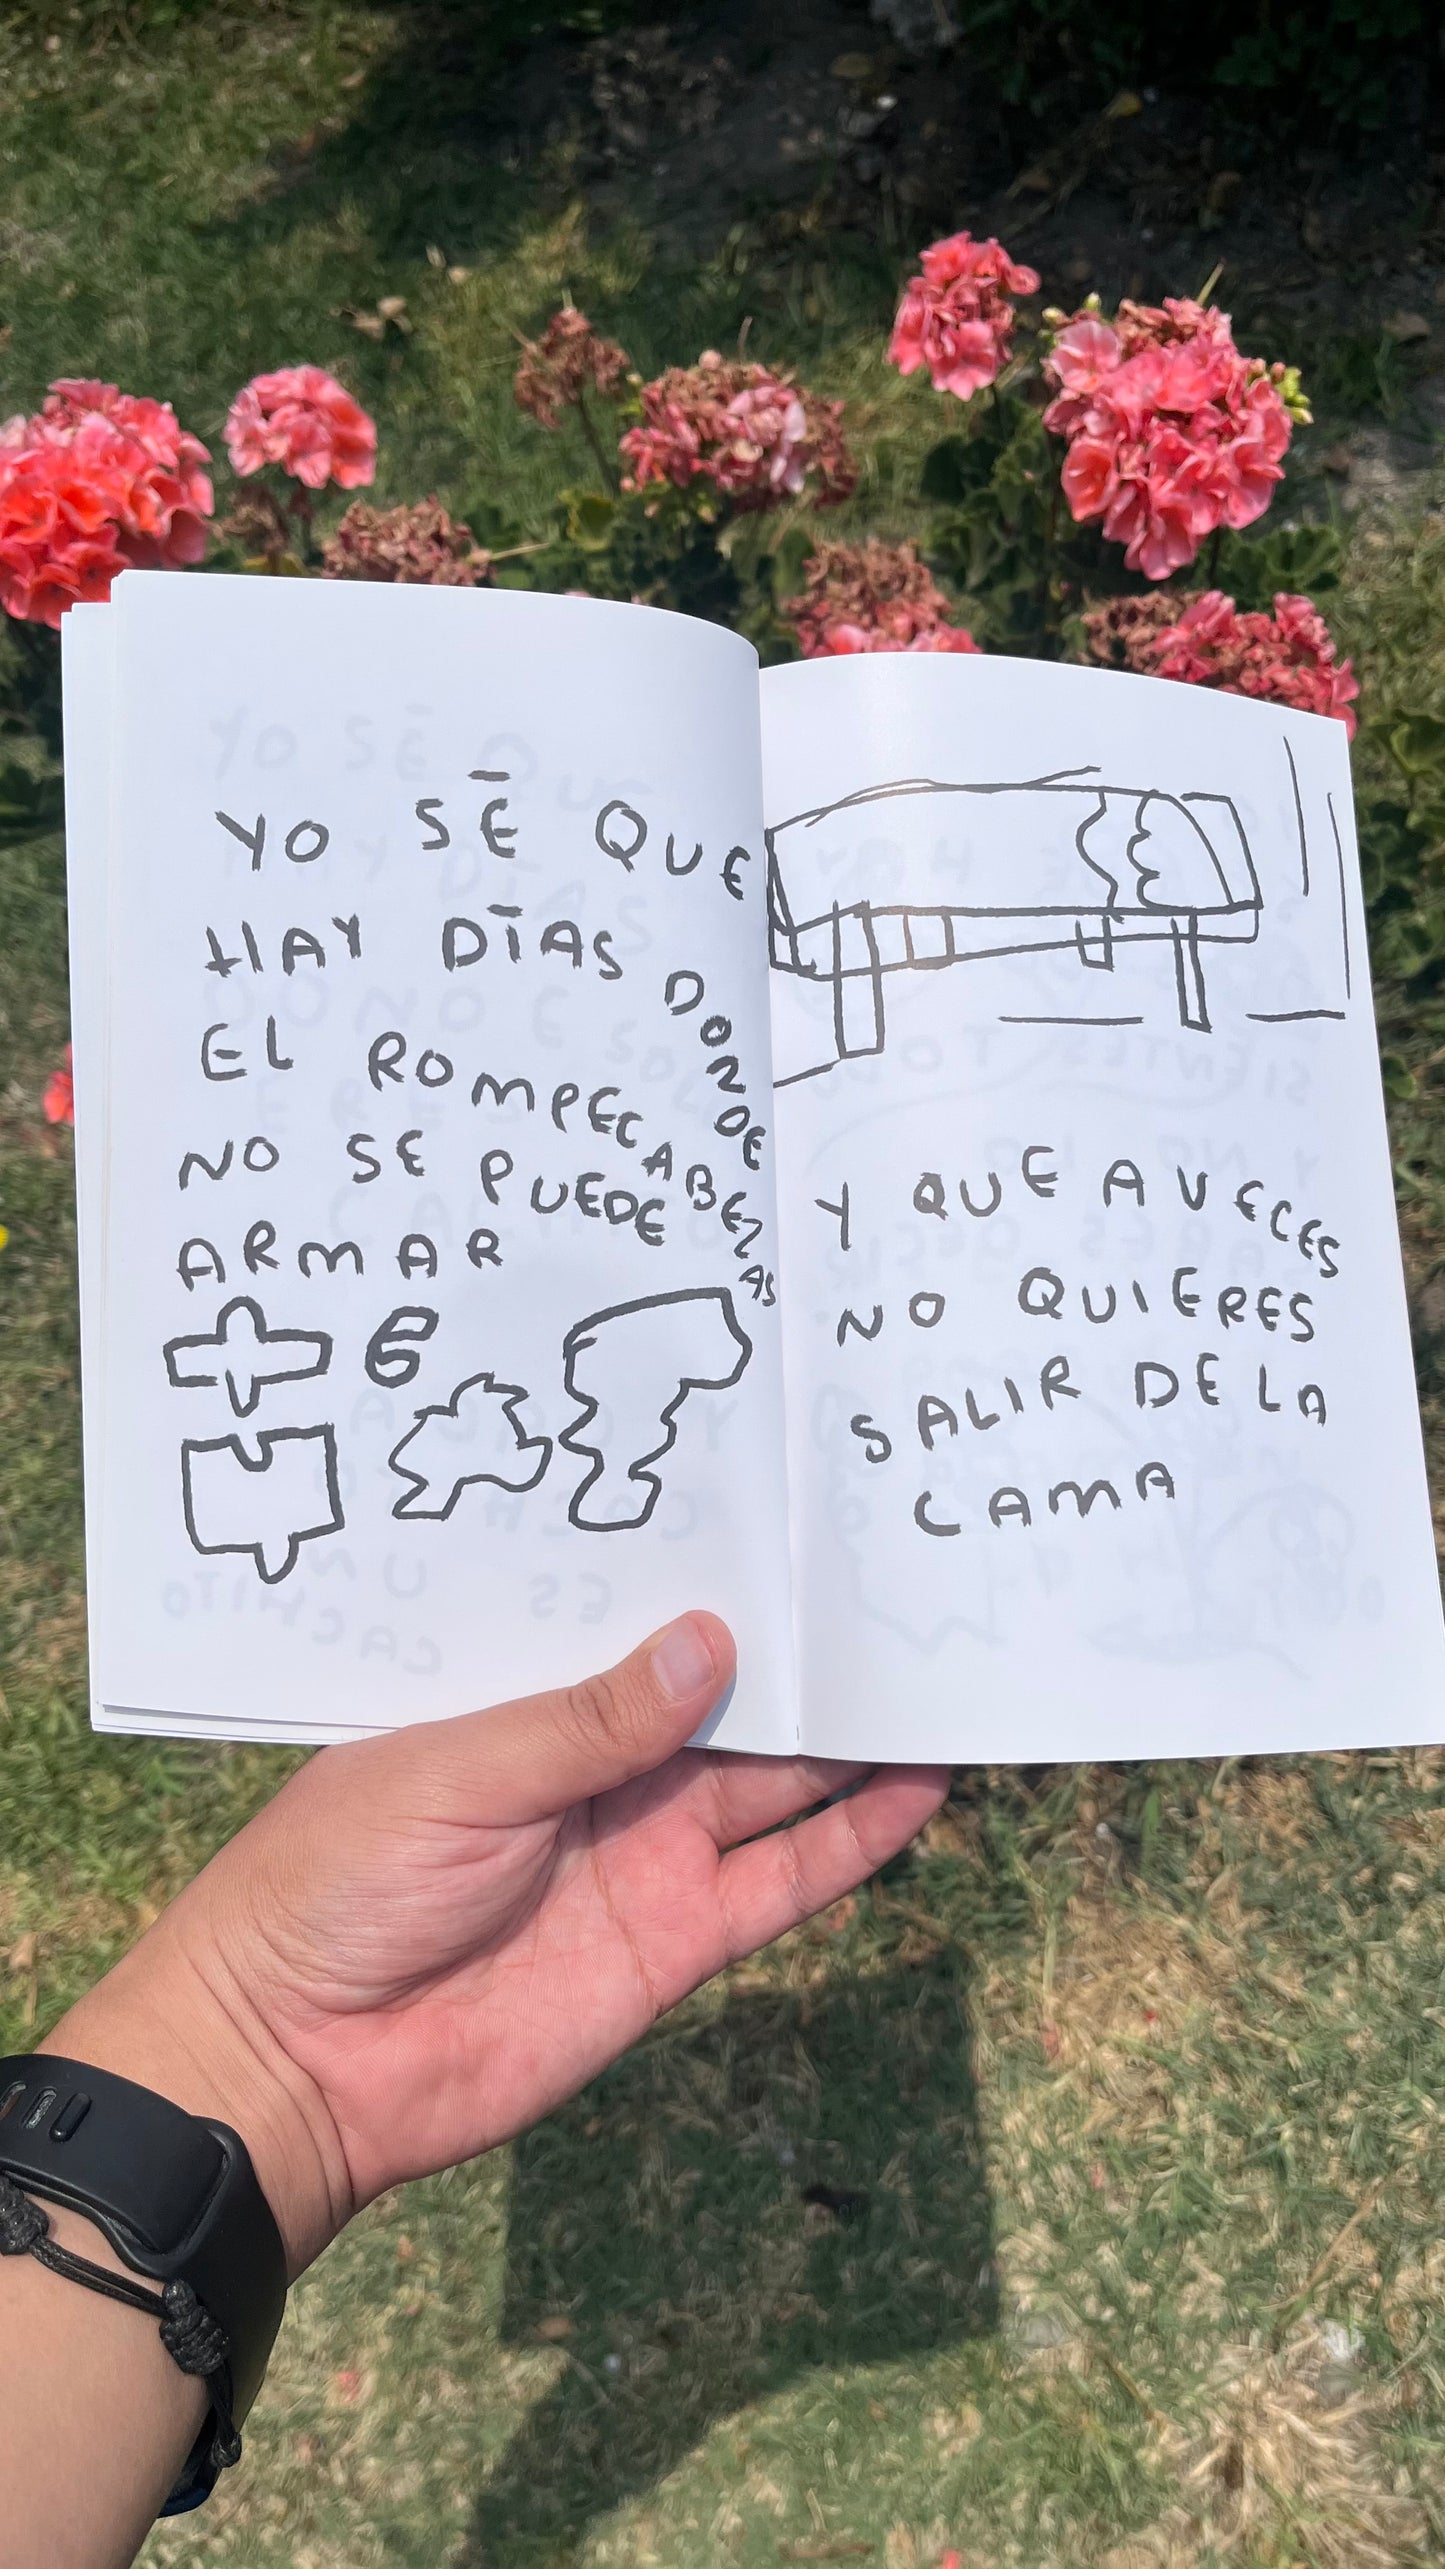 YO SÉ QUE
HAY DÍAS DONDE
EL ROMPECABEZAS
NO SE PUEDE
ARMAR
Y QUE A VECES
NO QUIERES
SALIR DE LA
CAMA